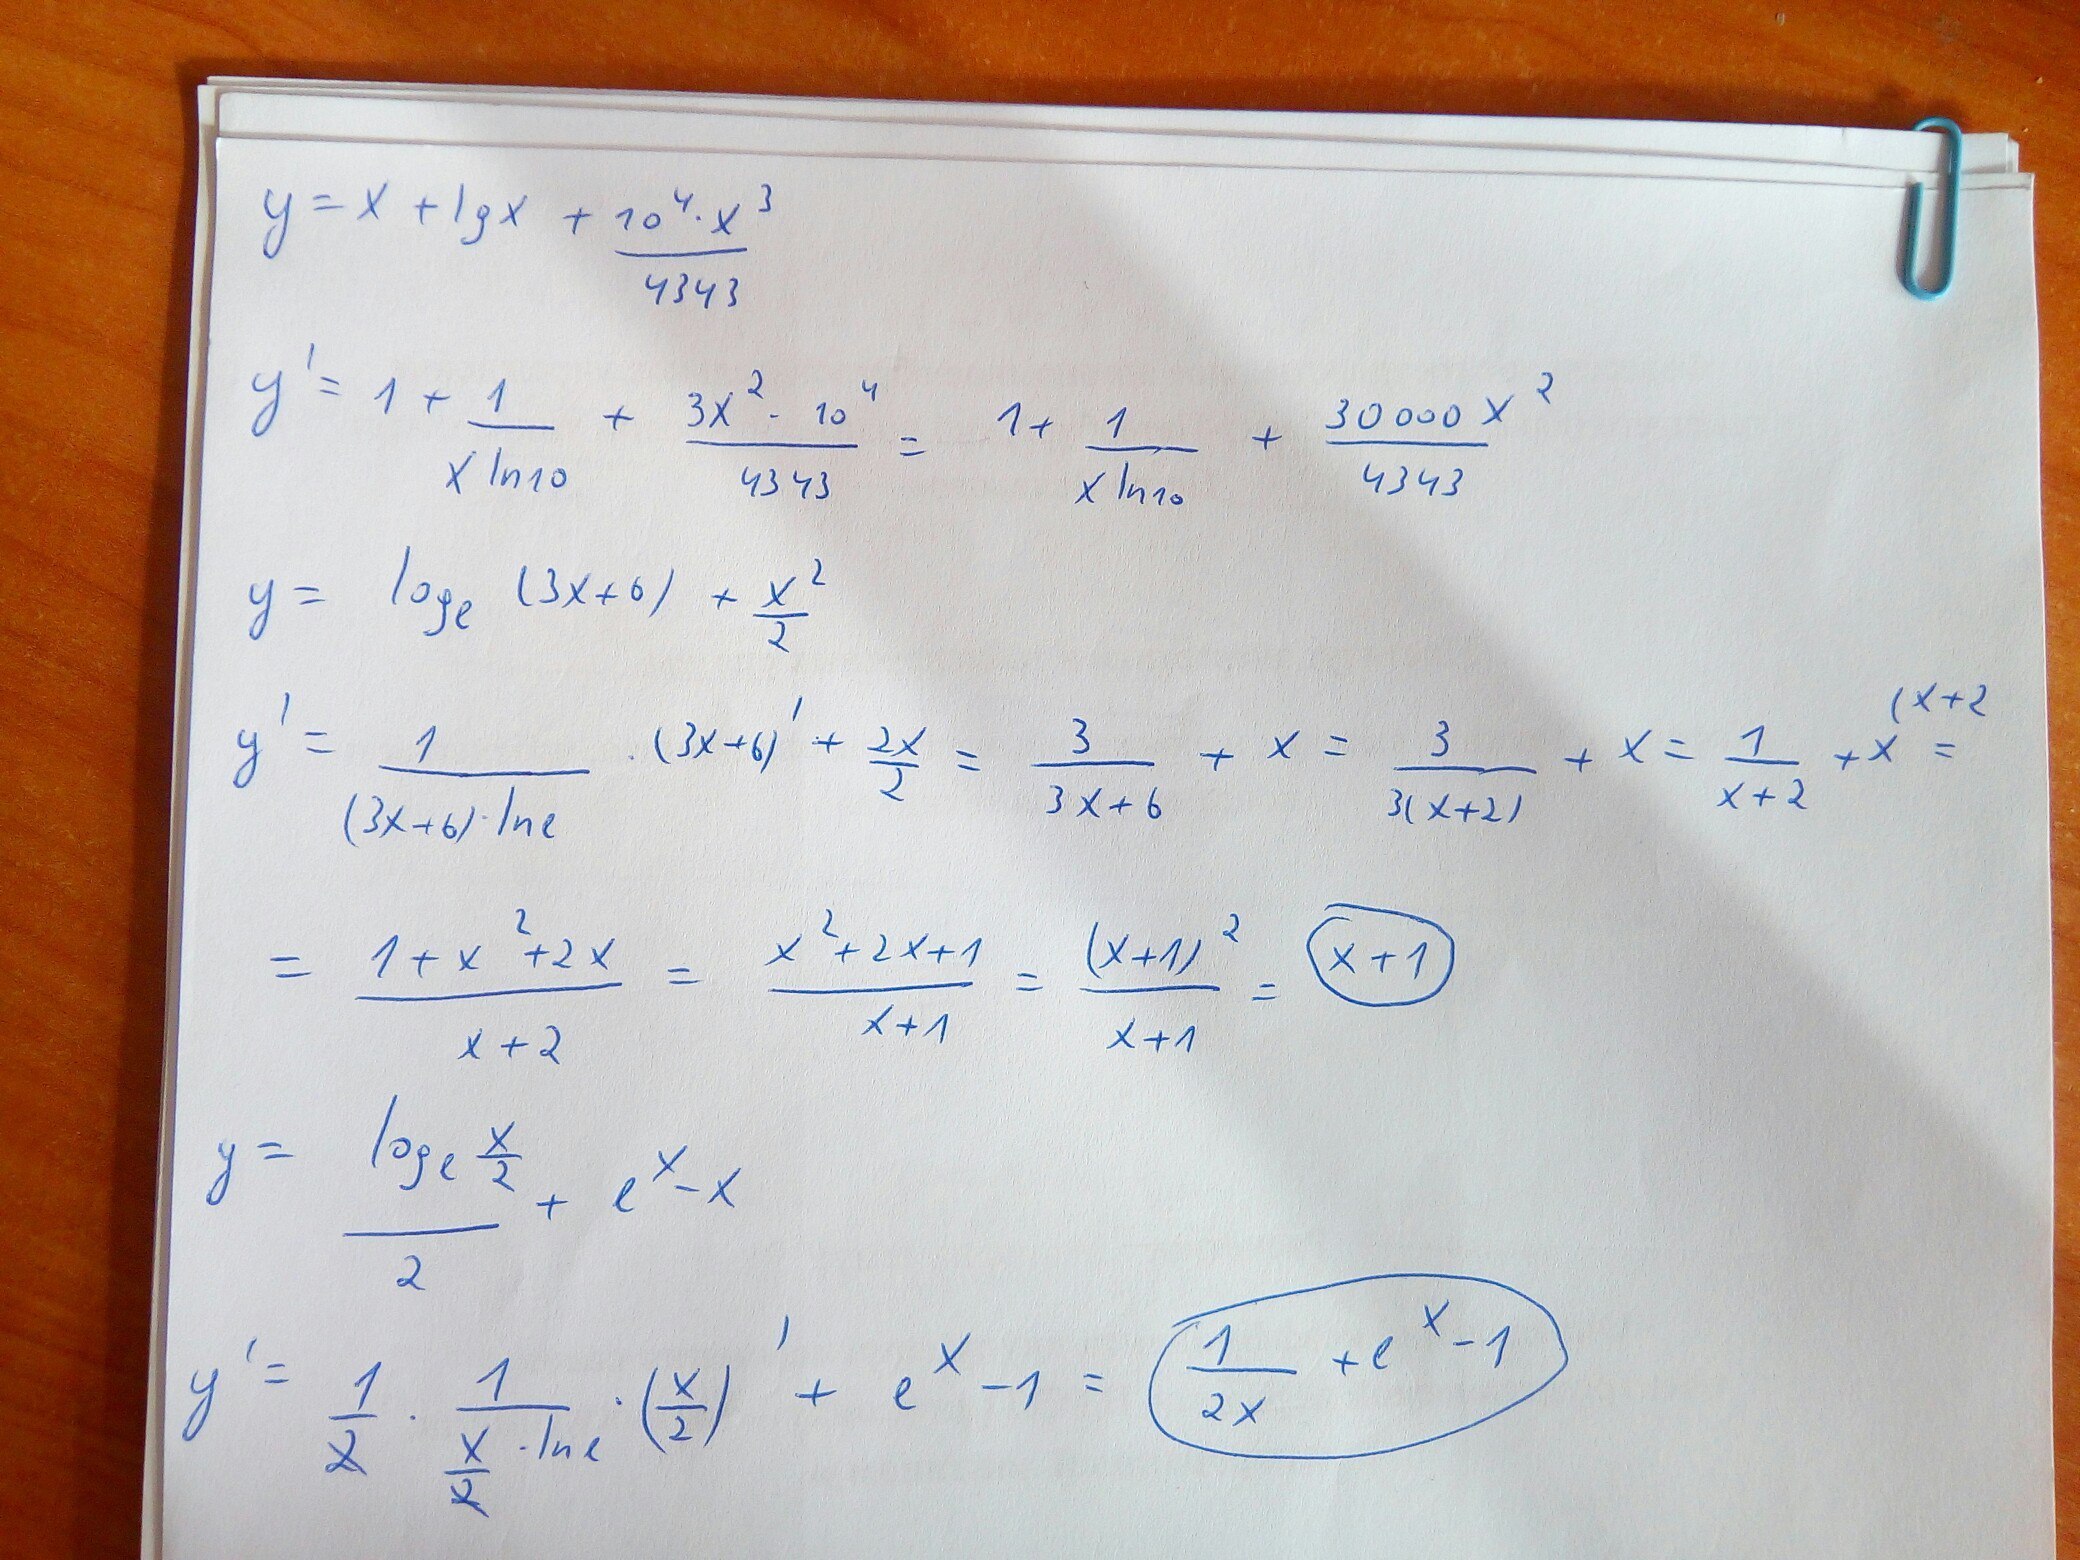 y = x + lg x + 10⁴·x³/4343
y' = 1 + 1/(x ln10) + 3x²·10⁴/4343 = 1 + 1/(x ln10) + 30000x²/4343
y = logₑ (3x+6) + x²/2
y' = 1/((3x+6)·ln e) · (3x+6)' + 2x/2 = 3/(3x+6) + x = 3/(3(x+2)) + x = 1/(x+2) + x (x+2 =
= (1+x²+2x)/(x+2) = (x²+2x+1)/(x+1) = (x+1)²/(x+1) = x+1
y = (logₑ x/2)/2 + eˣ - x
y' = 1/2 · 1/(x/2 · ln e) · (x/2)' + eˣ - 1 = 1/(2x) + eˣ - 1